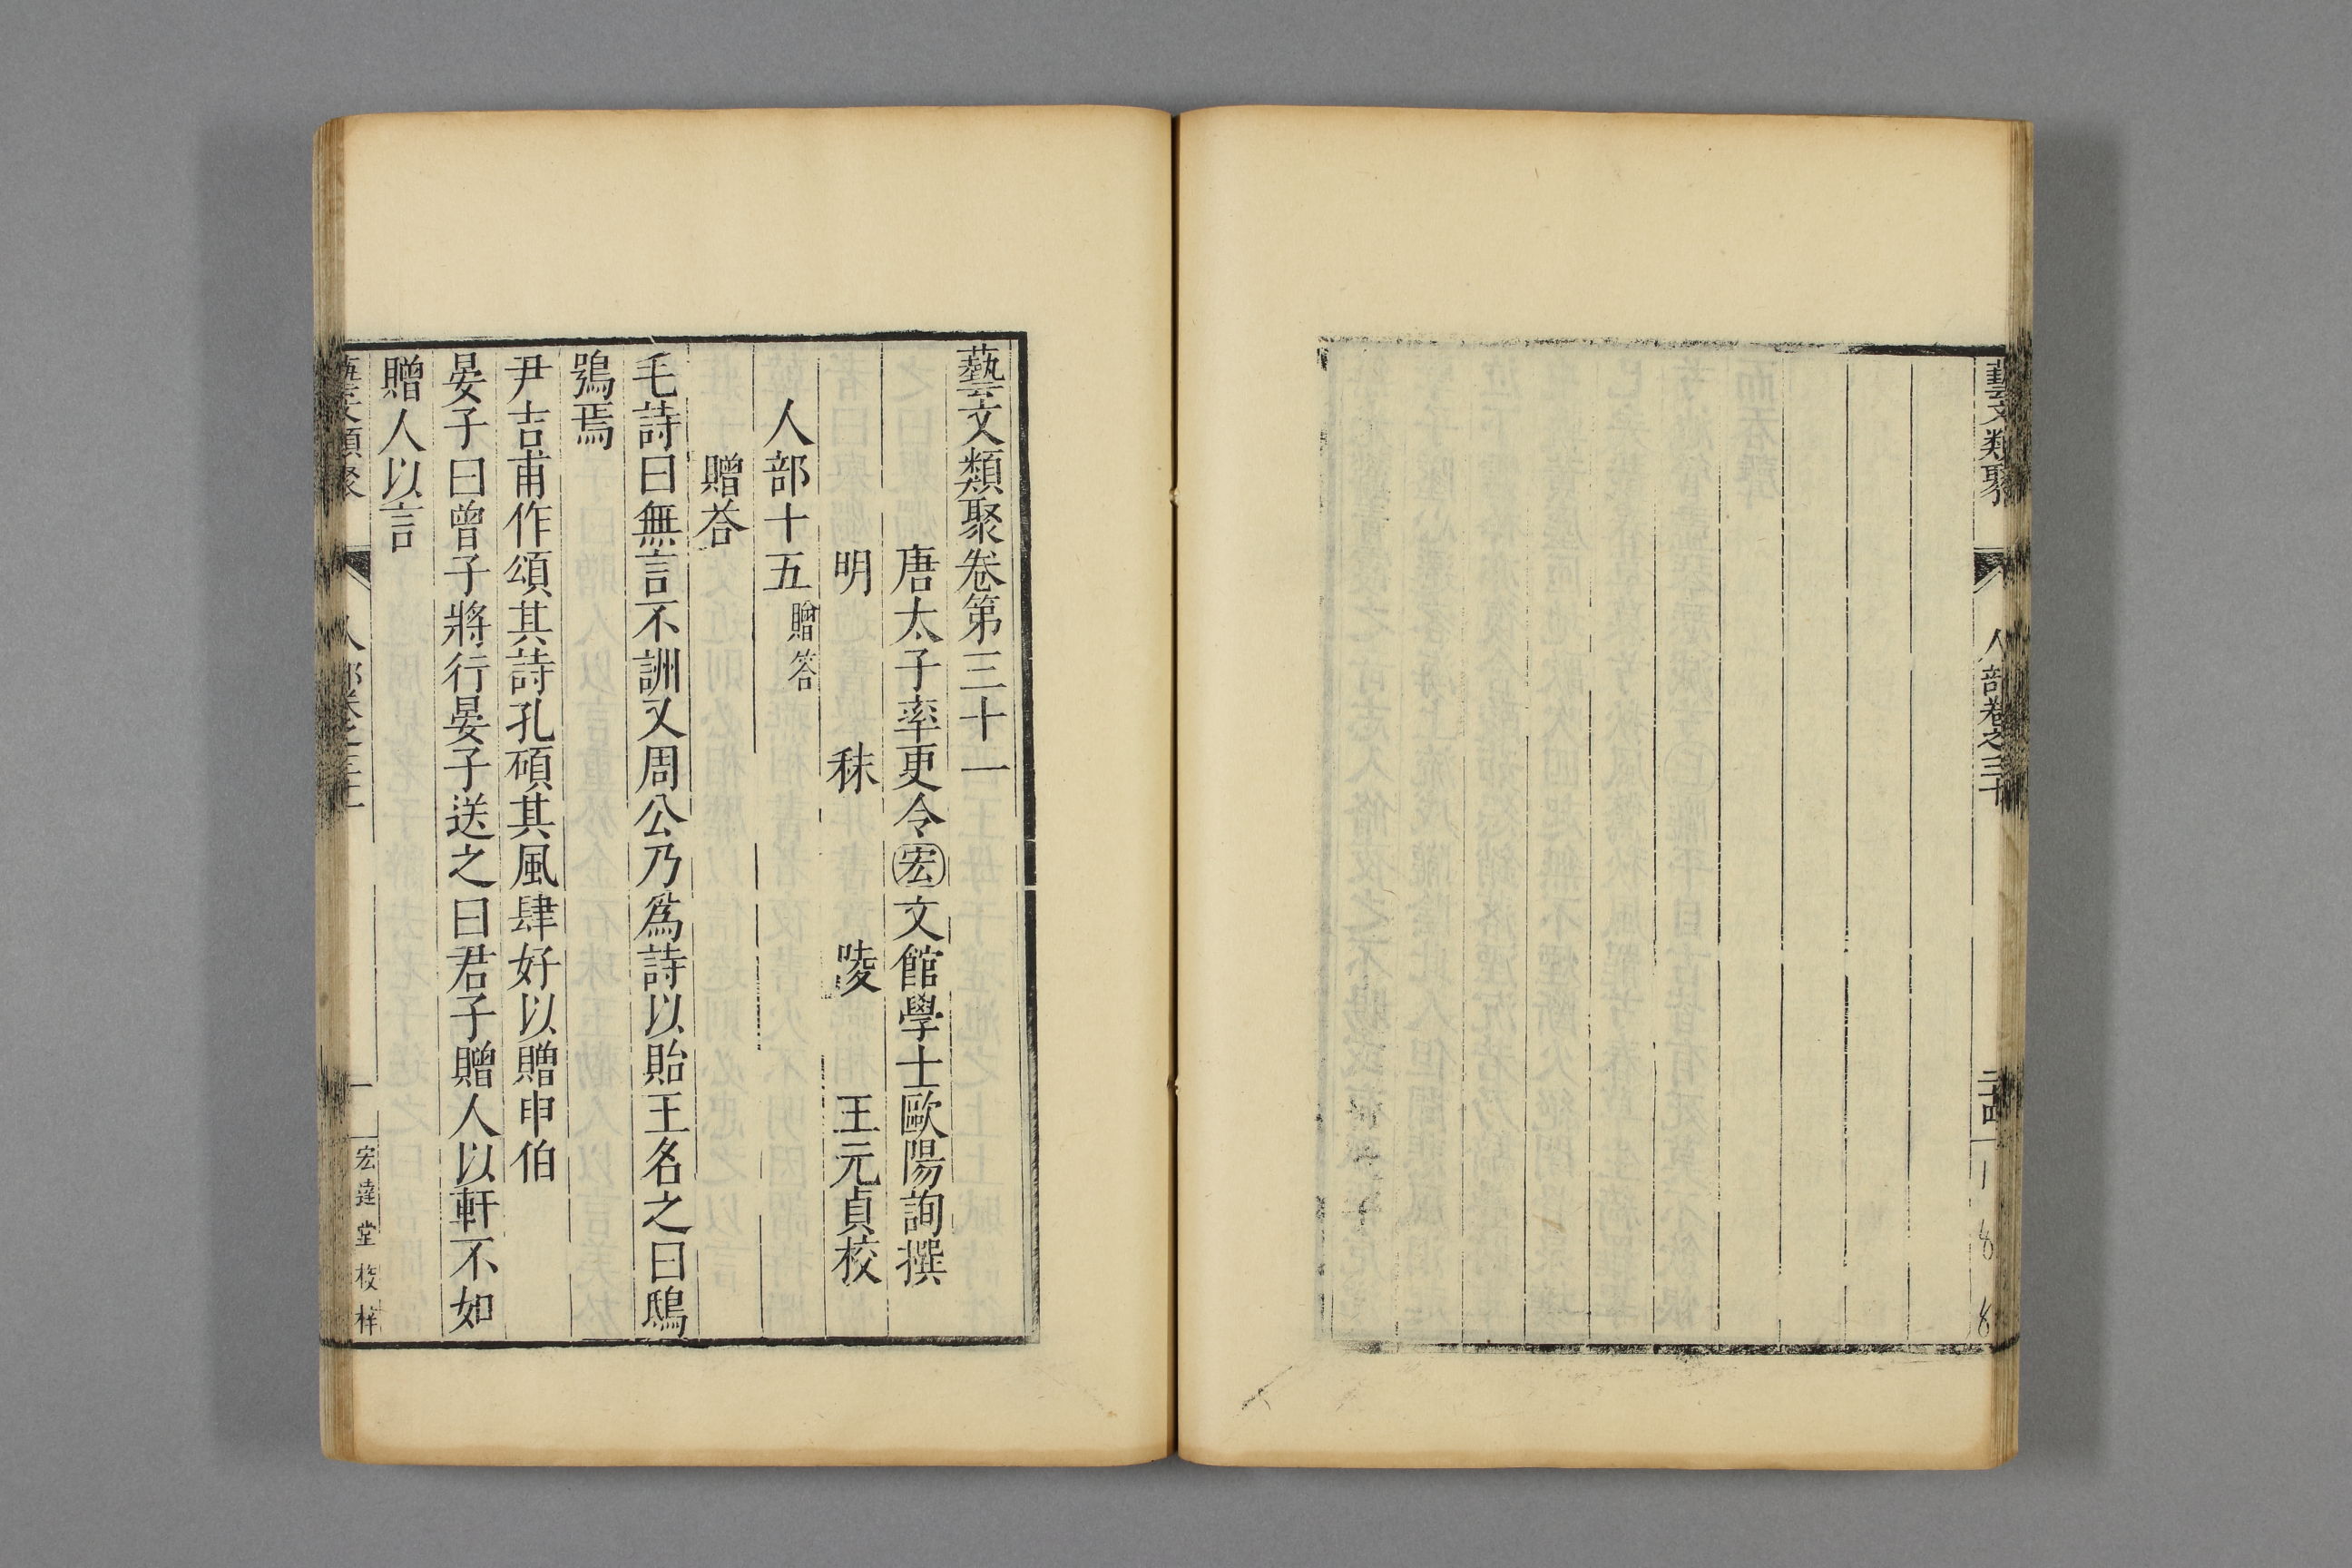 藝文類聚
人部卷之三十
藝文類聚卷第三十一
唐太子率更令宏文館學士歐陽詢撰
明 秣 陵 王元貞校
人部十五 贈答
贈荅
毛詩曰無言不詶又周公乃爲詩以貽王名之曰鴟
鴞焉
尹吉甫作頌其詩孔碩其風肆好以贈申伯
晏子曰曾子將行晏子送之曰君子贈人以軒不如
贈人以言
藝文類聚
人部卷之三十一
一
宏達堂校梓